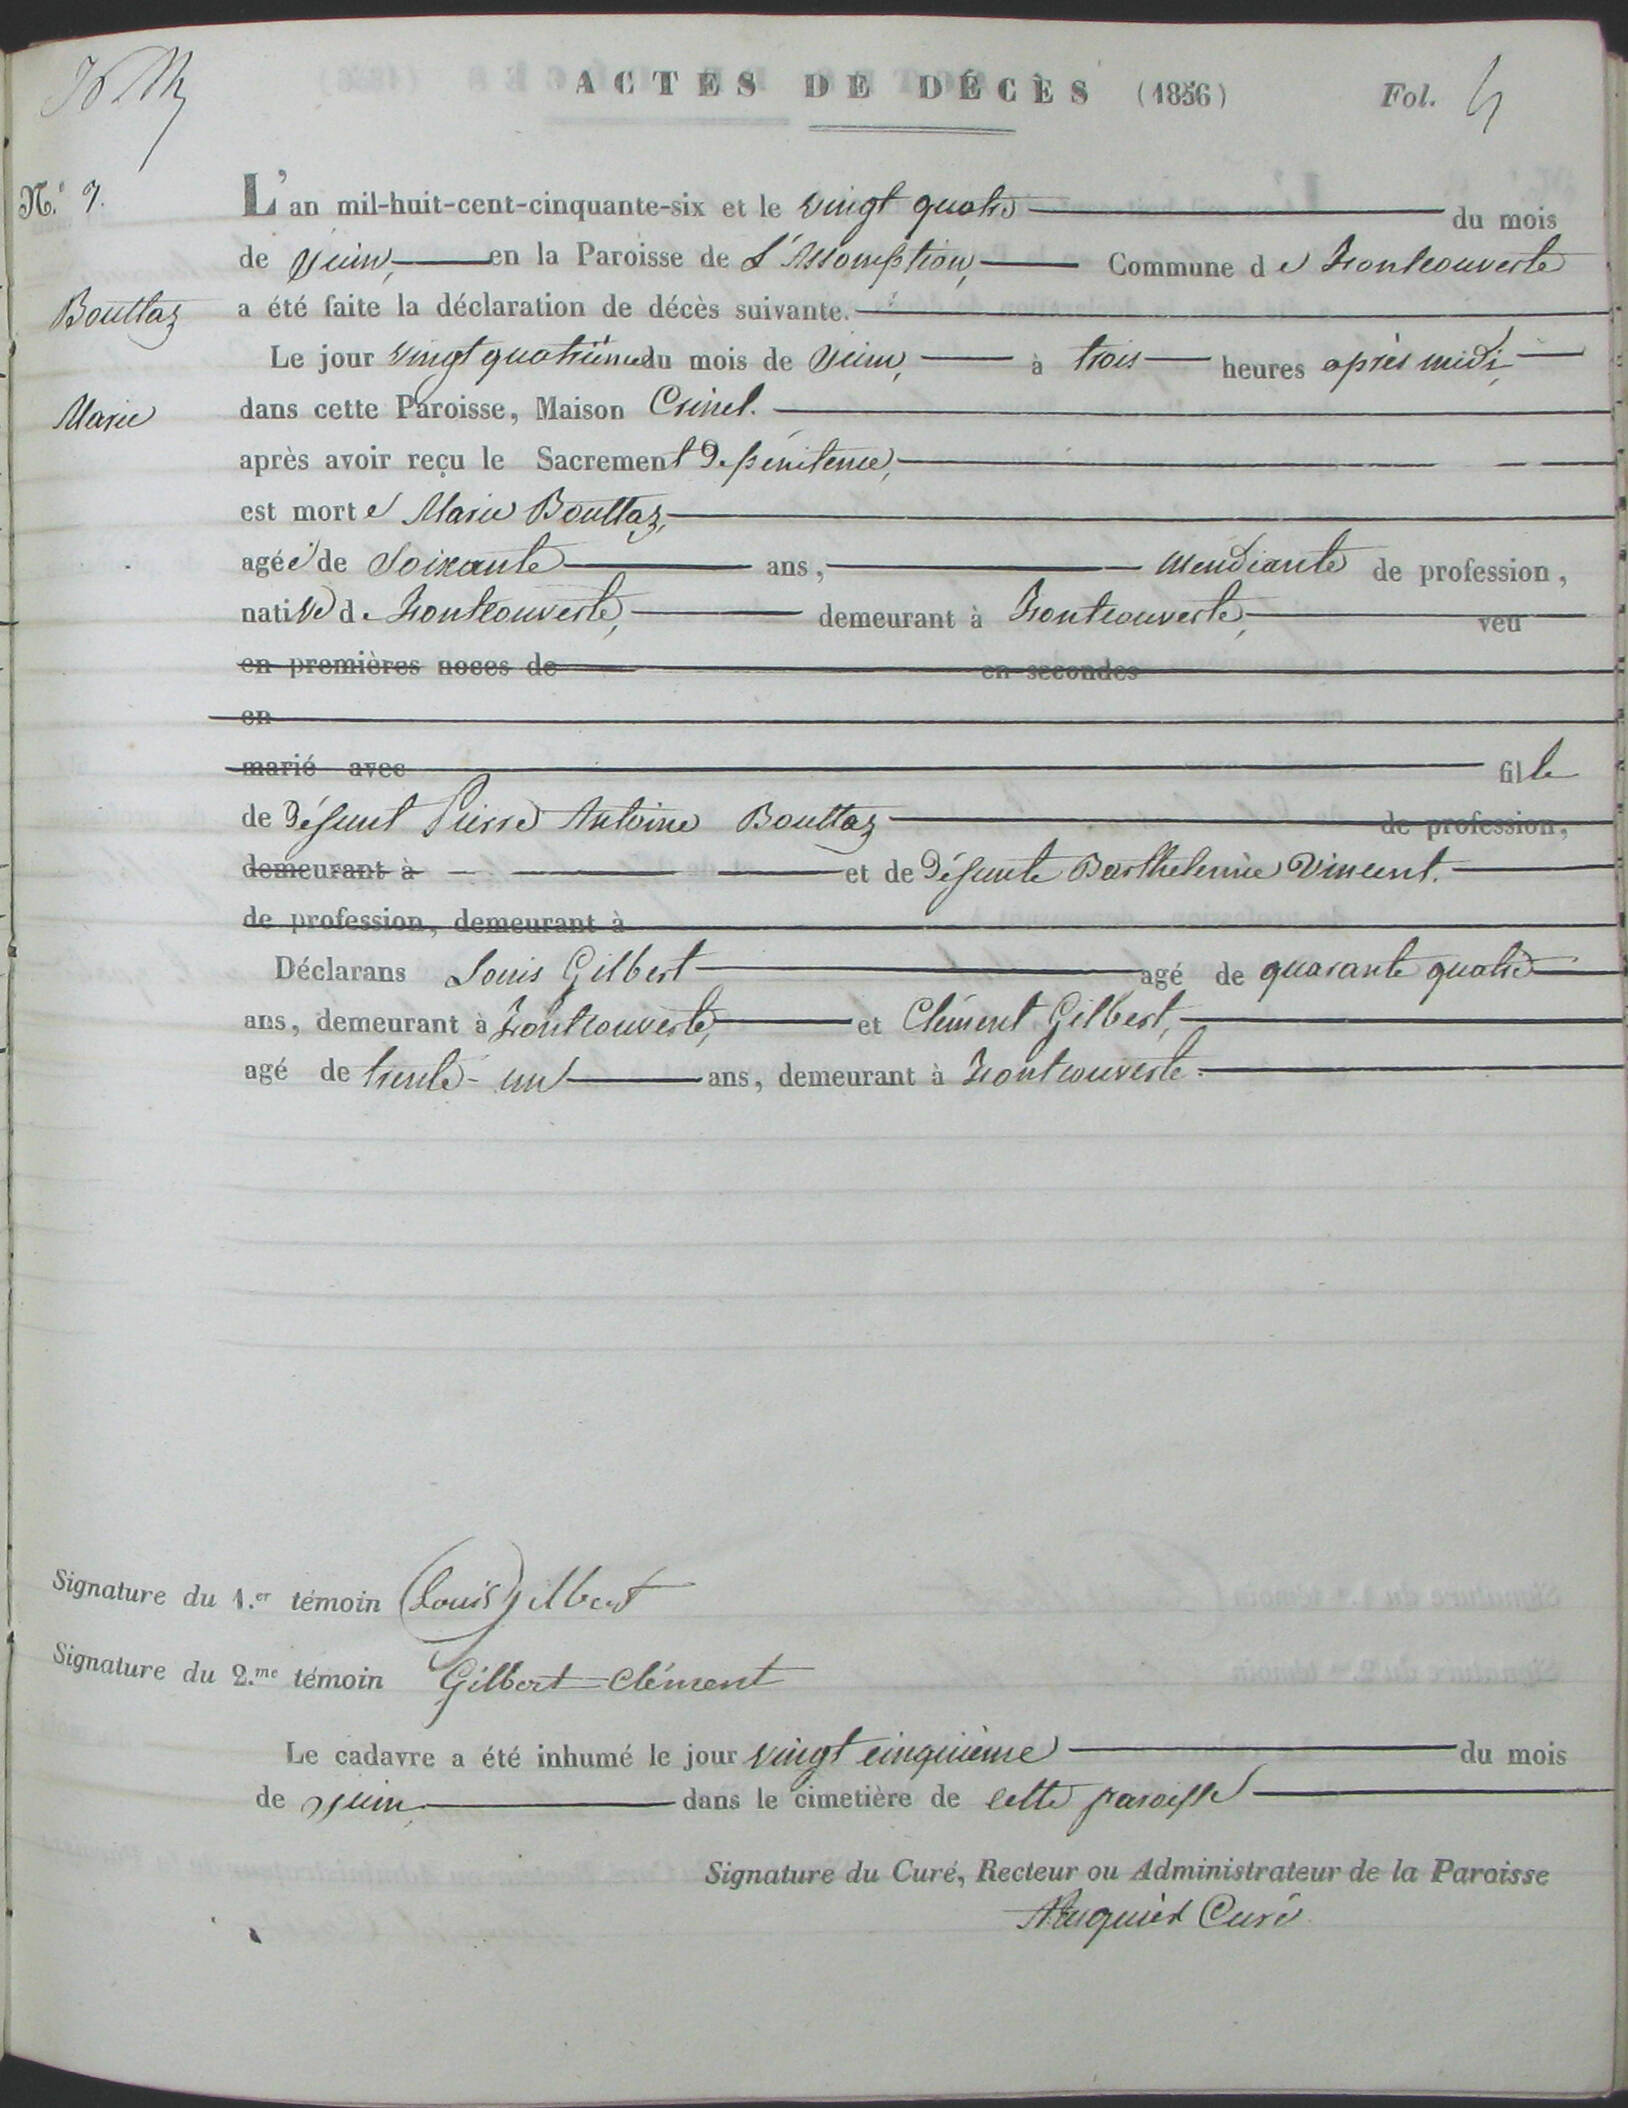 ACTES DE DÉCÈS (1856) Fol. 4
N.° 7. L'an mil-huit-cent-cinquante-six et le vingt quatre du mois
de Juin, en la Paroisse de L'Assomption, Commune de Montcouverte
Bouttaz a été faite la déclaration de décès suivante.
Le jour vingt quatrième du mois de Juin, à trois heures après midi,
Marie dans cette Paroisse, Maison
après avoir reçu le Sacrement De pénitence,
est morte Marie Bouttaz,
agée de Soixante ans, mendiante de profession,
native de Montcouverte, demeurant à Montcouverte, veu
en premières noces de en secondes
en
marié avec fille
de Défunt Pierre Antoine Bouttaz de profession,
demeurant à et de Défunte Barthelemie Vincent.
de profession, demeurant à
Déclarans Louis Gilbert agé de quarante quatre
ans, demeurant à Montcouverte, et Clément Gilbert,
agé de trente-un ans, demeurant à Montcouverte.
Signature du 1.er témoin Louis Gilbert
Signature du 2.me témoin Gilbert Clément
Le cadavre a été inhumé le jour vingt cinquième du mois
de Juin, dans le cimetière de cette paroisse
Signature du Curé, Recteur ou Administrateur de la Paroisse
Curé